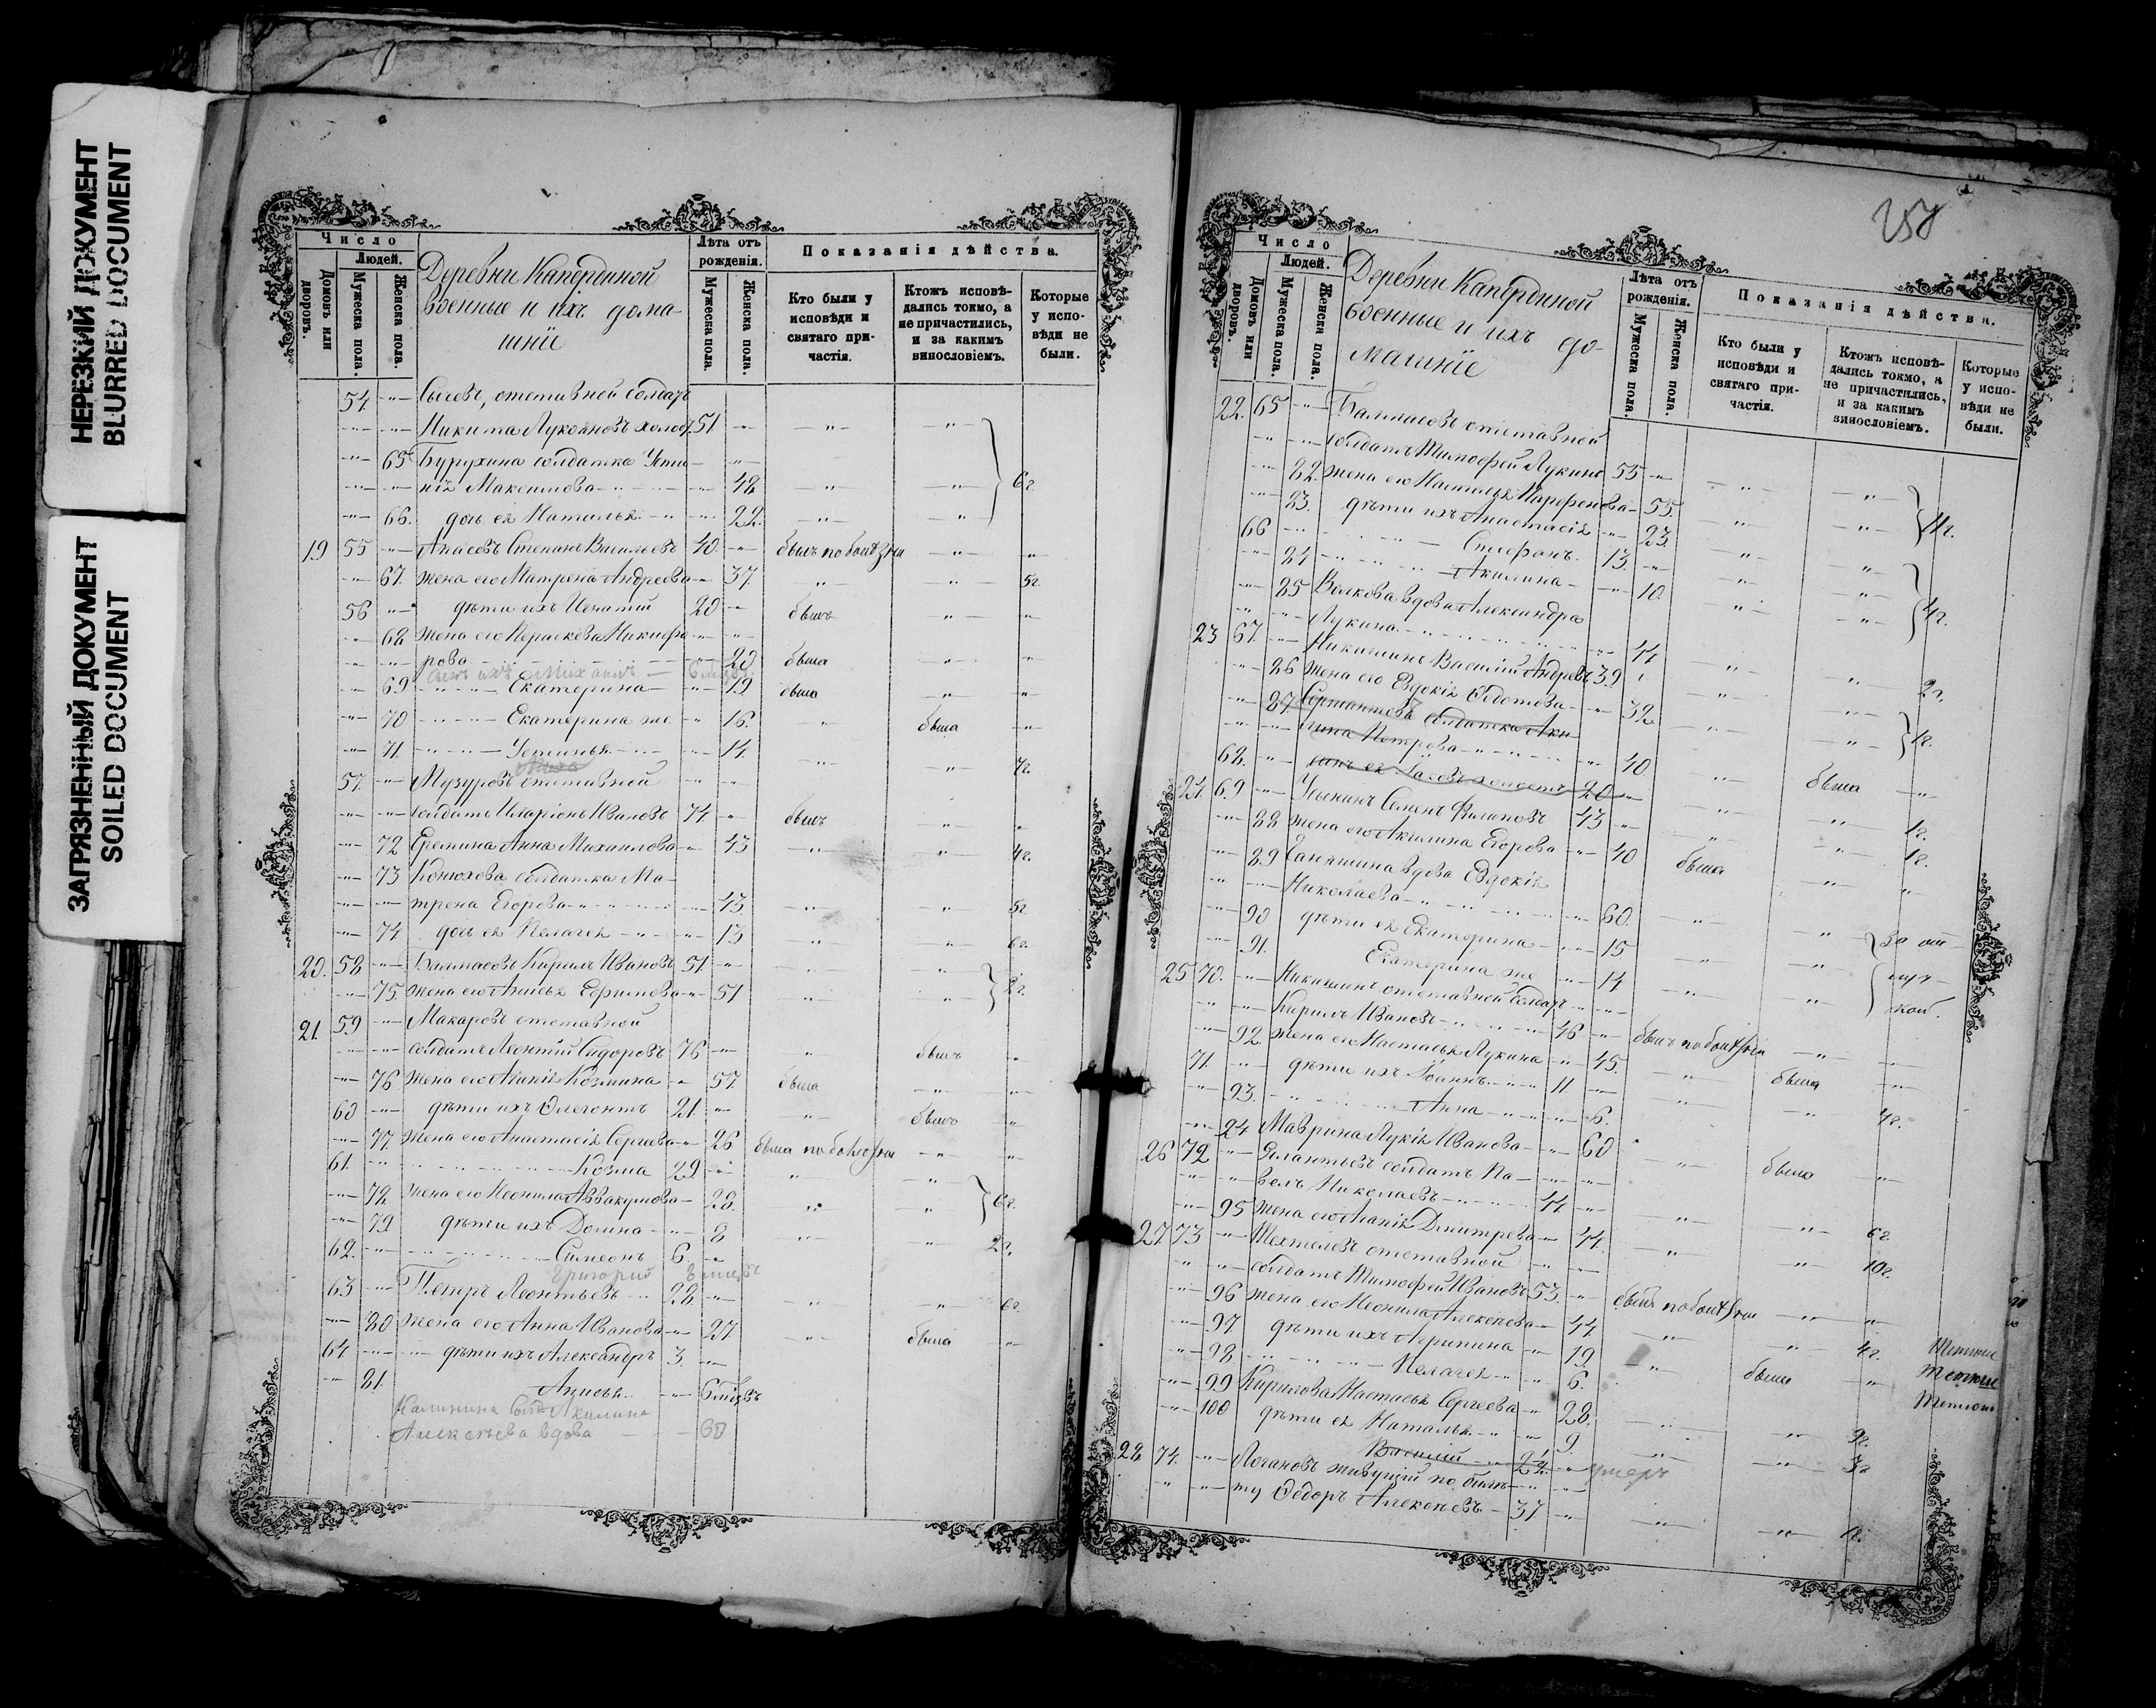 НЕРЕЗКИЙ ДОКУМЕНТ
BLURRED DOCUMENT
ЗАГРЯЗНЕННЫЙ ДОКУМЕНТ
SOILED DOCUMENT
Число
Людей.
Домовъ или дворовъ.
Мужеска пола.
Женска пола.
Деревни Капердиной
военные и ихъ дома-
шніе
Лѣта отъ рожденія.
Мужеска пола.
Женска пола.
Показанія дѣйства.
Кто были у исповѣди и святаго при-частія.
Ктожъ исповѣ-дались токмо, а не причастились, и за какимъ винословіемъ.
Которые у испо-вѣди не были.
54 отставной солдатъ
Никита Лукояновъ холос. 51
65 Бурухина солдатка Усти-
нія Максимова 48 6 г.
66. дочь ея Наталья 22.
19 55 Апасовъ Степанъ Васильевъ 40. былъ по болѣзни
67. жена его Матрена Андреева 37 5 г.
56 дѣти ихъ Игнатій 20 былъ
68 жена его Параскева Никифо-
рова 20 была
сынъ ихъ Михаилъ
69 Екатерина 19 была
70 Екатерина же 16. была
71. Устинья 14. 7 г.
57. Музуровъ отставной
солдатъ Иларіонъ Ивановъ 74 былъ
72 Еремина Анна Михаилова 43 4 г.
73 Конюхова солдатка Ма-
трена Егорова 43 5 г
74 дочь ея Пелагея 13 6 г.
20. 58 Балтасовъ Кирилъ Ивановъ 51. 2 г.
75. жена его Анисья Ефимова 51
21. 59 Макаровъ отставной
солдатъ Леонтій Сидоровъ 76 былъ
76 жена его Агапія Козмина 57. была
60 дѣти ихъ Флегонтъ 21. былъ
77. жена его Анастасія Сергѣева 26 была по болѣзни
61. Козма 29
78 жена его Неонила Аввакумова 28. 6 г.
79 дѣти ихъ Домна 8 2 г.
62. Симеонъ 6
Григорій
63 Петръ Леонтьевъ 28. 6 г
80 жена его Анна Иванова 27. была
64 дѣти ихъ Александръ 3.
81. Анисья 6 мѣсвъ
Калинина Акилина
Алексѣева вдова 60
258
Число
Людей.
Домовъ или дворовъ.
Мужеска пола.
Женска пола.
Деревни Капердиной
военные и ихъ до-
машніе
Лѣта отъ рожденія.
Мужеска пола.
Женска пола.
Показанія дѣйства.
Кто были у исповѣди и святаго при-частія.
Ктожъ исповѣ-дались токмо, а не причастились, и за какимъ винословіемъ.
Которые у испо-вѣди не были.
22. 65 Балтасовъ отставной
солдатъ Тимофей Лукинъ 55
82. жена его Наталья Парфенова 55.
83. дѣти ихъ Анастасія 23
66 Стефанъ 13.
84 Акилина 10. 4 г.
85 Волкова вдова Александра
Лукина 44 2 г.
23 67. Никишинъ Василій Андреевъ 39
86 жена его Евдокія Федотова 32. 1 г.
87. солдатка Аки-
лина Петрова 40. была
68. сынъ ея Іаковъ холостъ 20
24. 69 Семенъ Филиповъ 43 1 г.
88 жена его Акилина Егорова 40 была
89 вдова Евдокія
Николаева 60.
90 дѣти ея Екатерина 15. за от-
91. Екатерина же 14 луч-
25 70. Никишинъ отставной солдатъ кой.
Кирилъ Ивановъ 46 былъ по болѣзни
92 жена его Настасья Лукина 45. была
71. дѣти ихъ Іоаннъ 11 4 г.
93. Анна 6.
94 Маврина Лукія Иванова 60 была
26 72 солдатъ Па-
велъ Николаевъ 44 6 г
95 жена его Агапія Дмитрева 44. 10 г.
27. 73 отставной
солдатъ Тимофей Ивановъ 53. былъ по болѣзни
96 жена его Неонила Алексѣева 44 4 г.
97 дѣти ихъ Агрипина 19. была
98 Пелагея 6.
99 Кирилова Настасья Сергѣева 28. 9 г.
100 дѣти ея Наталья 9. 3 г
Василій умеръ
28 74. живущій по биле-
ту Федоръ Алексѣевъ 37 1 г.